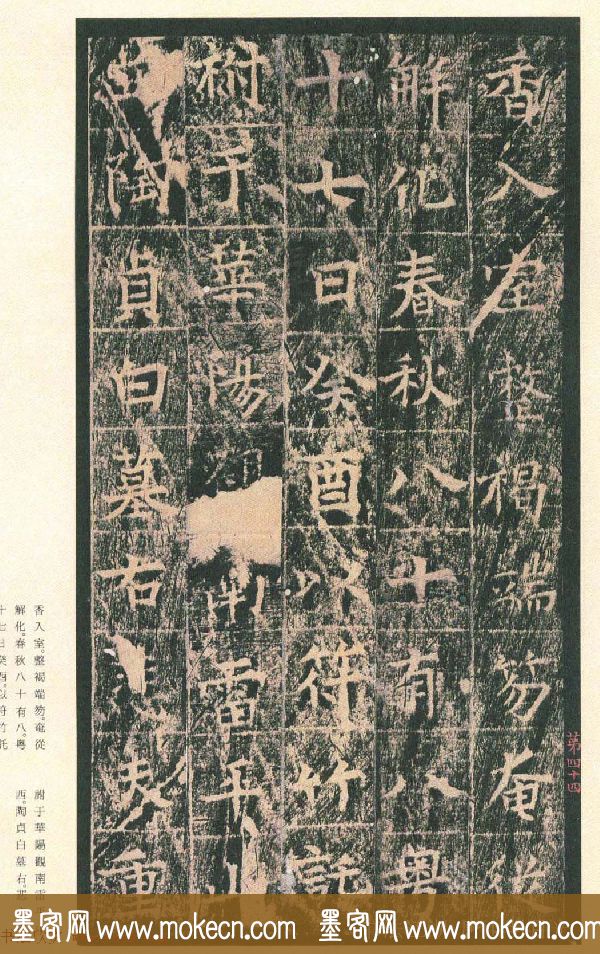 香入室整褐端笏奄從
解化春秋八十有八粵
十七日癸酉以符竹託
祔于華陽南雷平山
西陶貞白墓右夫重
第四十四
香入室。整褐端笏。奄從
解化。春秋八十有八。粵
十七日癸酉。以符竹託
祔于華陽觀南雷
西。陶貞白墓右。
墨客网 www.mokecn.com 墨客网 www.mokecn.com